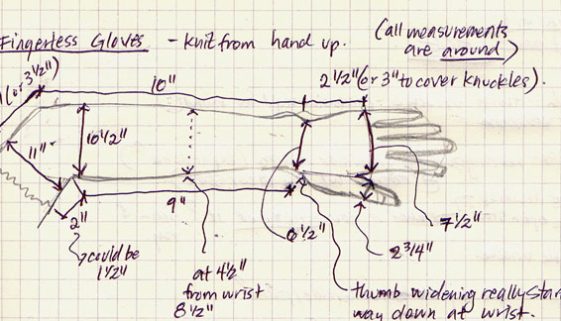 Fingerless Gloves - knit from hand up.
(all measurements
are around)
(or 3 1/2")
10"
2 1/2" (or 3" to cover knuckles).
10 1/2"
11"
2"
could be
1 1/2"
9"
at 4 1/2"
from wrist
8 1/2"
6 1/2"
7 1/2"
2 3/4"
thumb widening really star
way down at wrist.